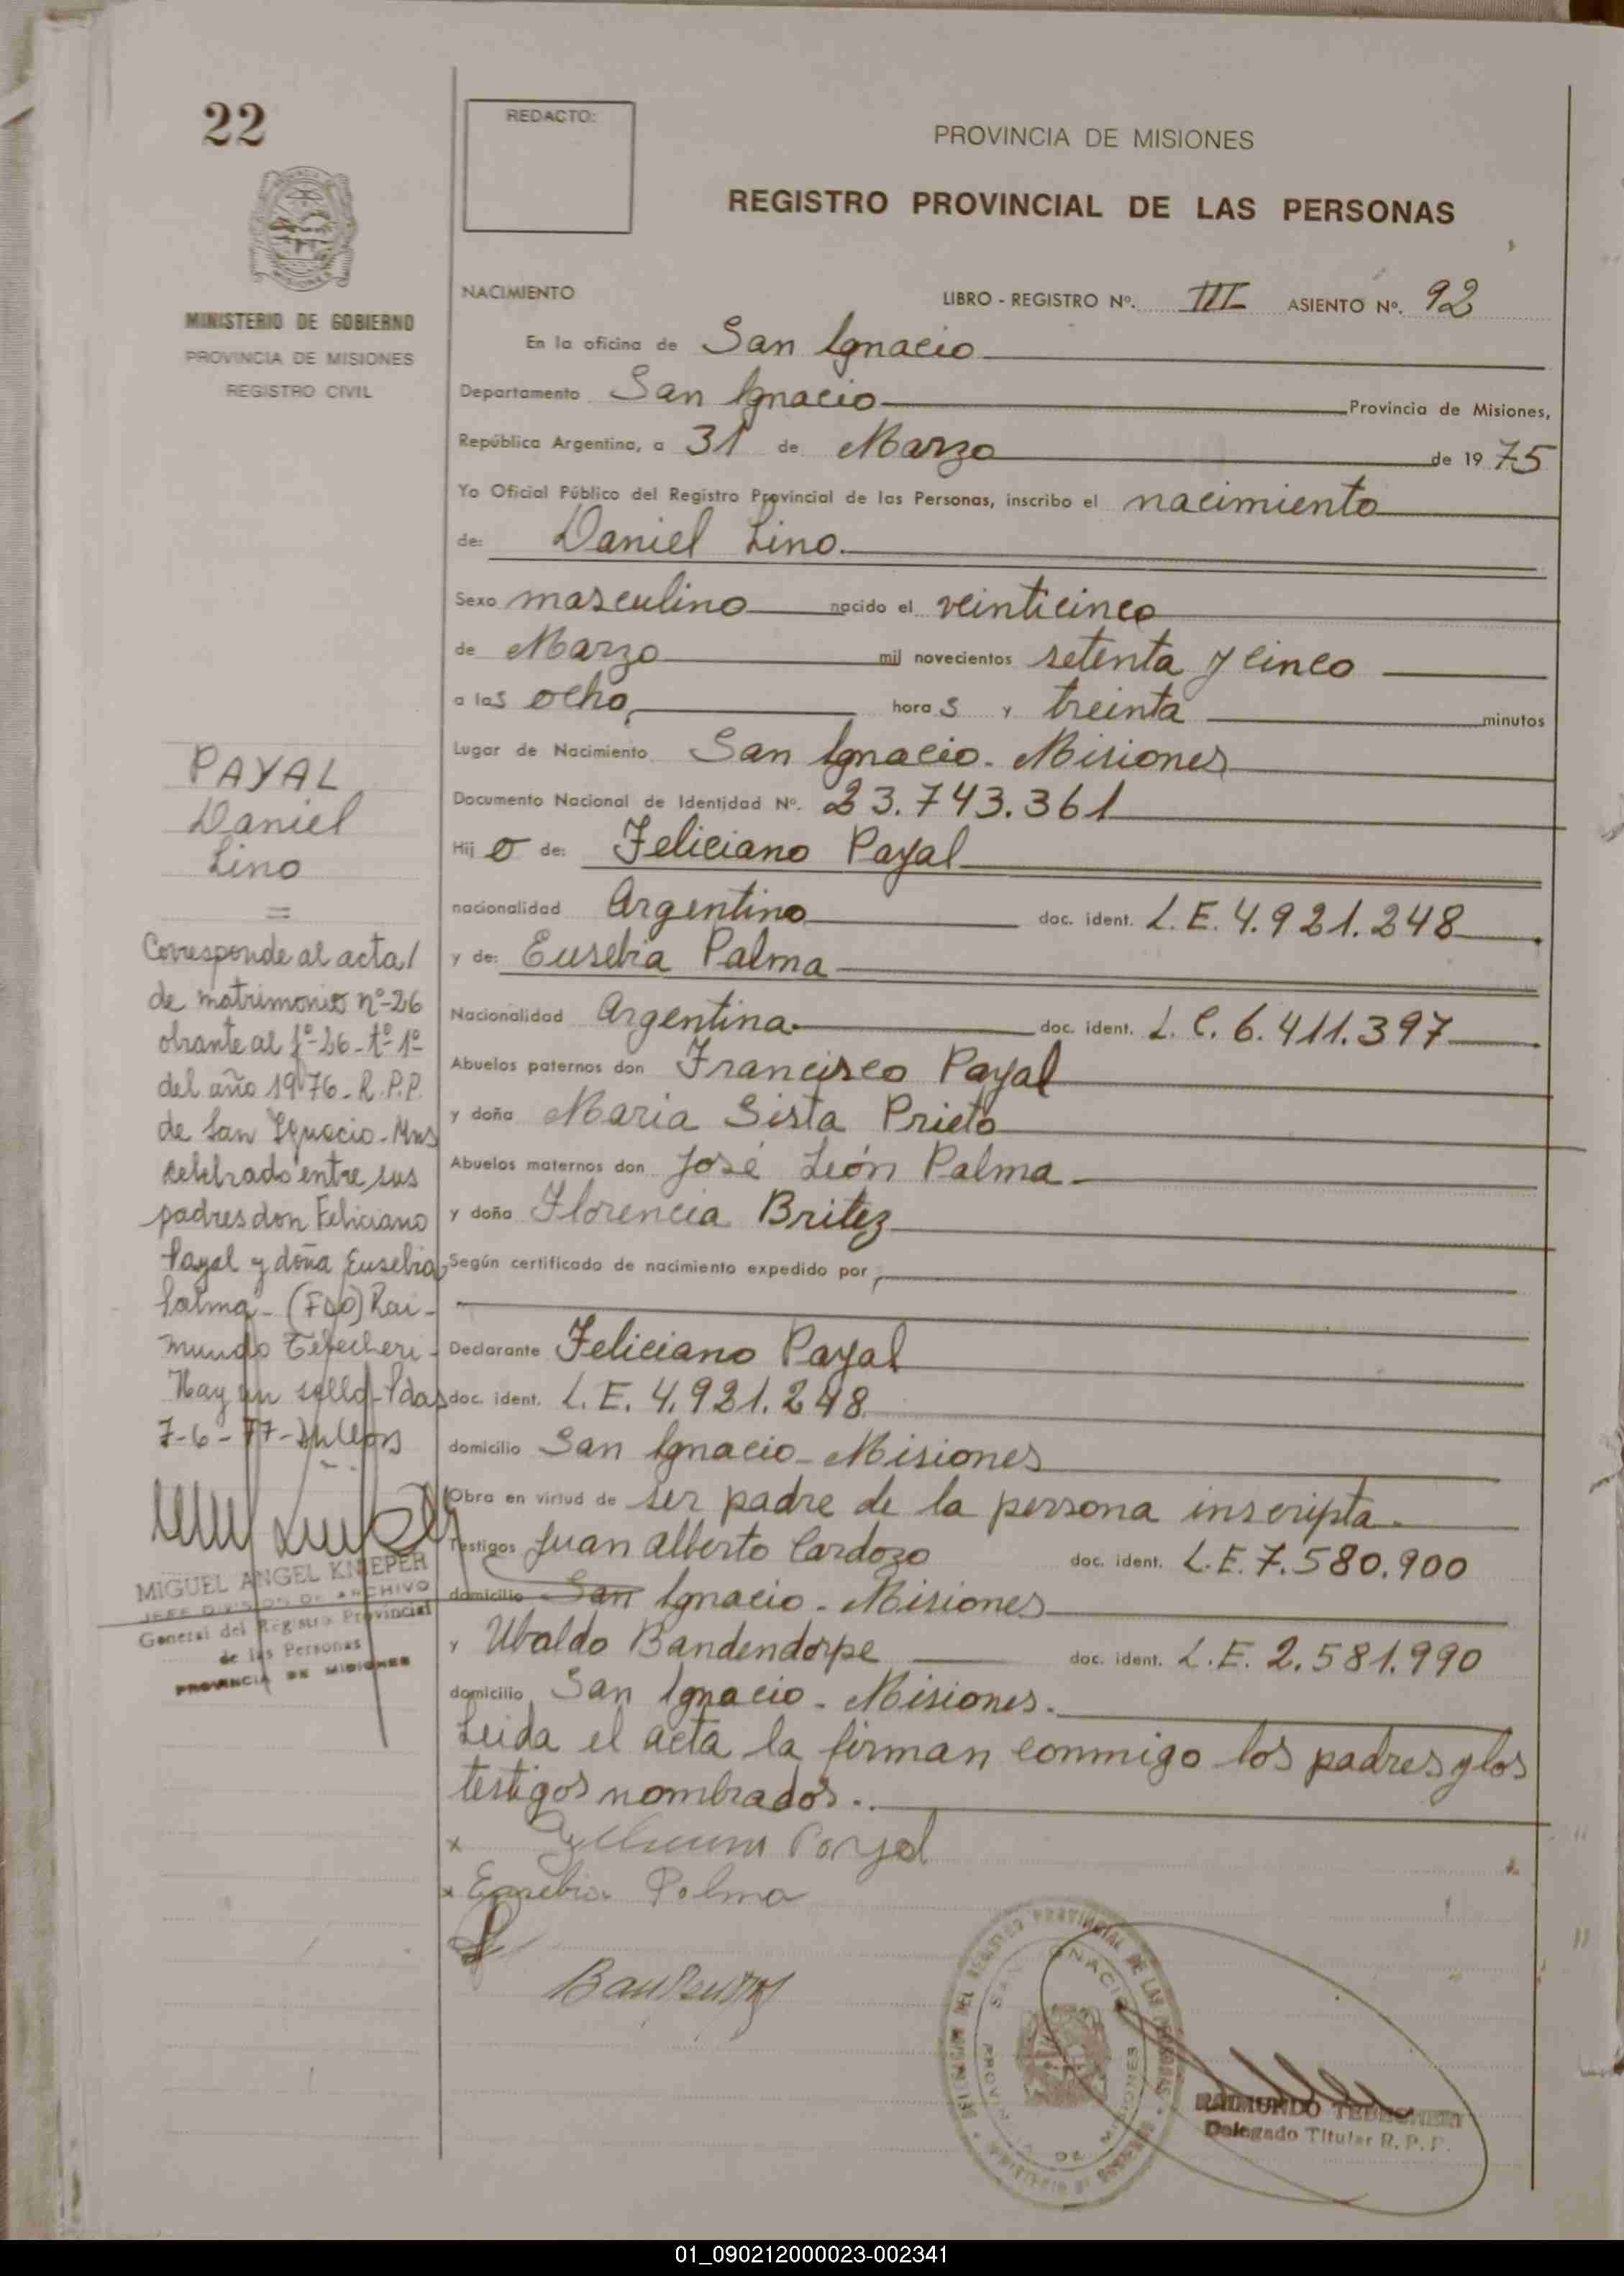 22
REDACTO:
PROVINCIA DE MISIONES
REGISTRO PROVINCIAL DE LAS PERSONAS
MINISTERIO DE GOBIERNO
PROVINCIA DE MISIONES
REGISTRO CIVIL
NACIMIENTO
LIBRO - REGISTRO Nº. III ASIENTO Nº. 92
En la oficina de San Ignacio
Departamento San Ignacio Provincia de Misiones,
República Argentina, a 31 de Marzo de 1975
Yo Oficial Público del Registro Provincial de las Personas, inscribo el nacimiento
de: Daniel Lino.
Sexo masculino nacido el veinticinco
de Marzo mil novecientos setenta y cinco
a las ocho, horas y treinta minutos
Lugar de Nacimiento San Ignacio - Misiones
Documento Nacional de Identidad Nº. 23.743.361
Hijo de: Feliciano Payal
nacionalidad Argentino doc. ident. L.E. 4.921.248
y de: Eusebia Palma
Nacionalidad Argentina doc. ident. L.C. 6.411.397
Abuelos paternos don Francisco Payal
y doña Maria Sista Prieto
Abuelos maternos don José León Palma
y doña Florencia Britez
Según certificado de nacimiento expedido por
Declarante Feliciano Payal
doc. ident. L.E. 4.921.248
domicilio San Ignacio - Misiones
Obra en virtud de ser padre de la persona inscripta.
Testigos Juan Alberto Cardozo doc. ident. L.E. 7.580.900
domicilio San Ignacio - Misiones
y Ubaldo Bandendorpe doc. ident. L.E. 2.581.990
domicilio San Ignacio - Misiones.
Leida el acta la firman conmigo los padres y los
testigos nombrados..
x Payal
x Eusebia Palma
PAYAL
Daniel
Lino
=
Corresponde al acta/
de matrimonio nº-26
obrante al fº-26-tº-1º
del año 1976-R.P.P.
de San Ignacio-Mns
celebrado entre sus
padres don Feliciano
Payal y doña Eusebia
Palma-(FDO) Rai-
mundo
Hay un sello-Pdas
7-6-77-
MIGUEL ANGEL KNIEPER
JEFE DIVISION DE ARCHIVO
General del Registro Provincial
de las Personas
PROVINCIA DE MISIONES
DEL REGISTRO PROVINCIAL DE LAS PERSONAS
SAN IGNACIO
PROVINCIA DE MISIONES
RAIMUNDO
Delegado Titular R. P. P.
01_090212000023-002341